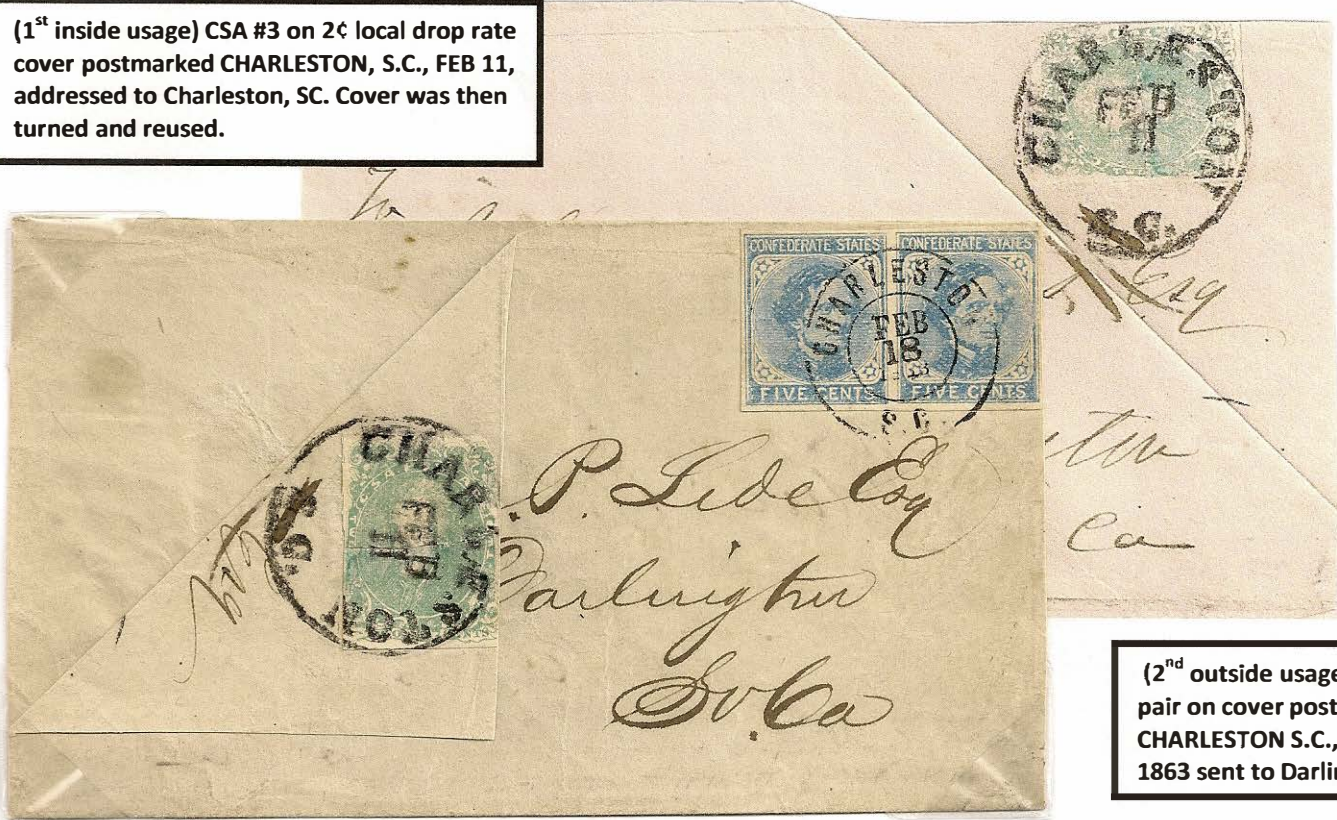 (1st inside usage) CSA #3 on 2¢ local drop rate
cover postmarked CHARLESTON, S.C., FEB 11,
addressed to Charleston, SC. Cover was then
turned and reused.
CHARLESTON
FEB
11
S.C.
To
Esq
Ca
CONFEDERATE STATES CONFEDERATE STATES
FIVE CENTS FIVE CENTS
CHARLESTON
FEB
18
S.C.
CHARLESTON
FEB
11
S.C.
Esq
P. Lide Esq
Darlington
So Ca
(2nd outside usage
pair on cover post
CHARLESTON S.C.,
1863 sent to Darlin